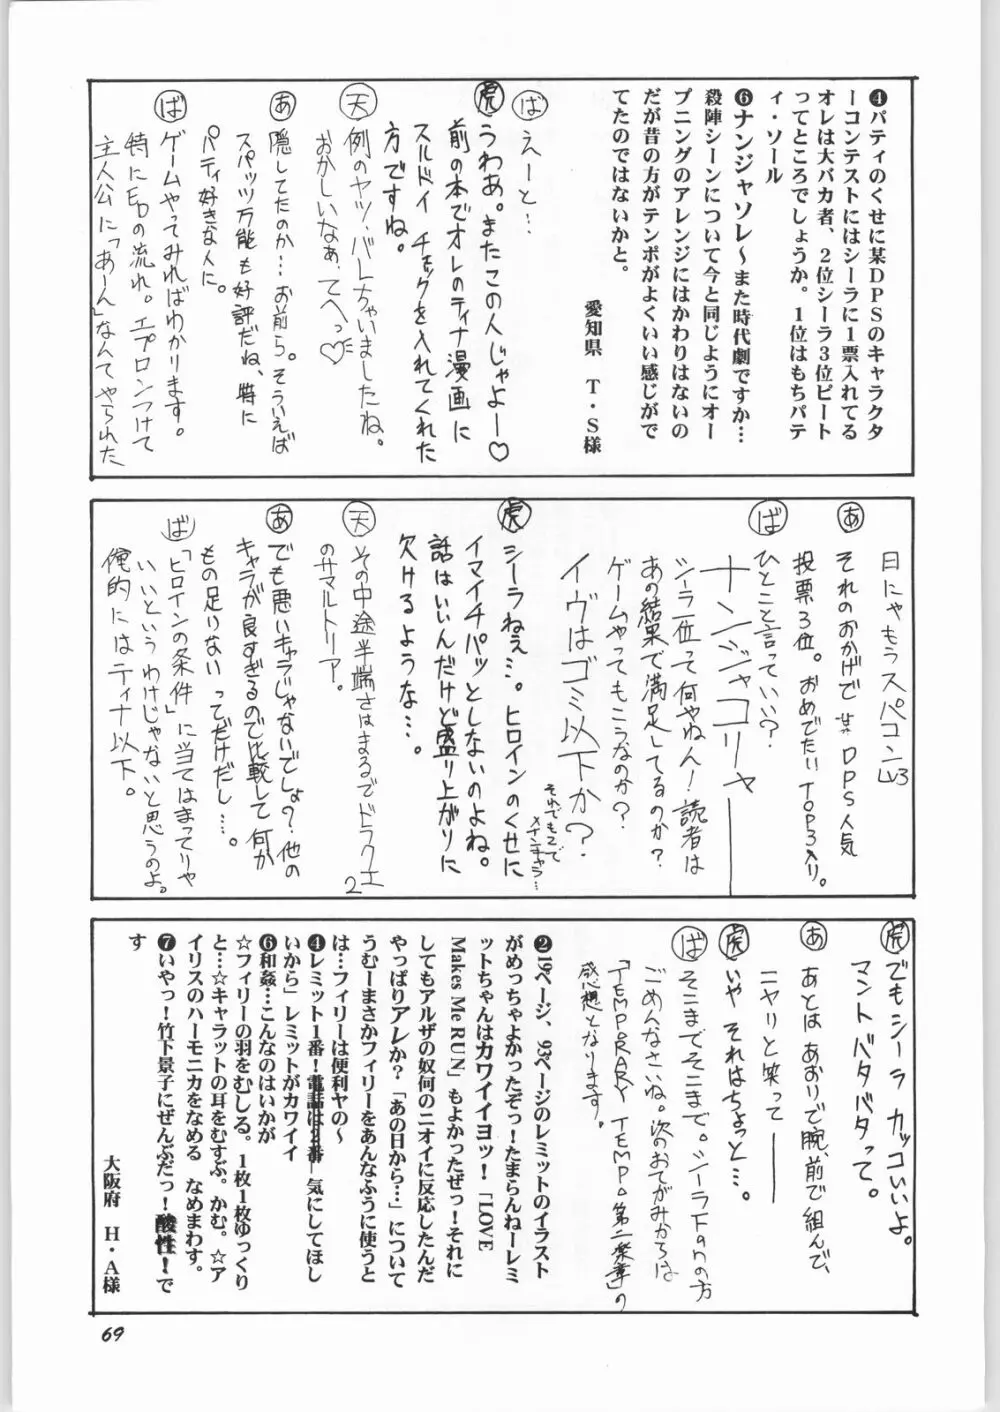 ❹パティのくせに某DPSのキャラクタ
ーコンテストにはシーラに1票入れてる
オレは大バカ者、2位シーラ3位ピート
ってところでしょうか。1位はもちパテ
ィ・ソール
❻ナンジャソレ～また時代劇ですか…
殺陣シーンについて今と同じようにオー
プニングのアレンジにはかわりはないの
だが昔の方がテンポがよくいい感じがで
てたのではないかと。
愛知県 T・S様
ば えーと…
虎 うわあ。またこの人じゃよー♡
前の本でオレのティナ漫画に
スルドイ チェックを入れてくれた
方ですね。
天 例のヤツ、バレちゃいましたね。
おかしいなぁ、てへっ♡
あ 隠してたのか…お前ら。そういえば
スパッツ万能も好評だね、特に
パティ好きな人に。
ば ゲームやってみればわかります。
特にEDの流れ。エプロンつけて
主人公に「あーん」なんてやられた
日にゃもうスパコンLV3
あ それのおかげで某DPS人気
投票3位。おめでたいTOP3入り。
ば ひとこと言っていい?
ナンジャコリャ――
シーラ一位って何やねん!読者は
あの結果で満足してるのか?
ゲームやってもこうなのか?
イヴはゴミ以下か?
それでもって
メインキャラ…
虎 シーラねぇ…。ヒロインのくせに
イマイチパッとしないのよね。
話はいいんだけど盛り上がりに
欠けるような…。
天 その中途半端さはまるでドラクエ2
のサマルトリア。
あ でも悪いキャラじゃないでしょ?他の
キャラが良すぎるので比較して何か
もの足りないってだけだし…。
ば 「ヒロインの条件」に当てはまってりゃ
いいというわけじゃないと思うのよ。
俺的にはティナ以下。
虎 でもシーラカッコいいよ。
マントバタバタって。
あ あとはあおりで腕、前で組んで、
ニヤリと笑って――
虎 いや それはちょっと…。
ば そこまでそこまで。シーラFanの方
ごめんなさいね。次のおてがみからは
「TEMPORARY TEMPO第二楽章」の
感想となります。
❷19ページ、93ページのレミットのイラスト
がめっちゃよかったぞっ!たまらんねーレミ
ットちゃんはカワイイヨッ!「LOVE
Makes Me RUN」もよかったぜっ!それに
してもアルザの奴何のニオイに反応したんだ
やっぱりアレか?「あの日から…」について
うむーまさかフィリーをあんなふうに使うと
は…フィリーは便利ヤの～
❹レミット1番!電話は2番―気にしてほし
いから」レミットがカワイイ
❻和姦…こんなのはいかが
☆フィリーの羽をむしる。1枚1枚ゆっくり
と…☆キャラットの耳をむすぶ。かむ。☆ア
イリスのハーモニカをなめる なめまわす。
❼いやっ!竹下景子にぜんぶだっ!酸性!で
す
大阪府 H・A様
69